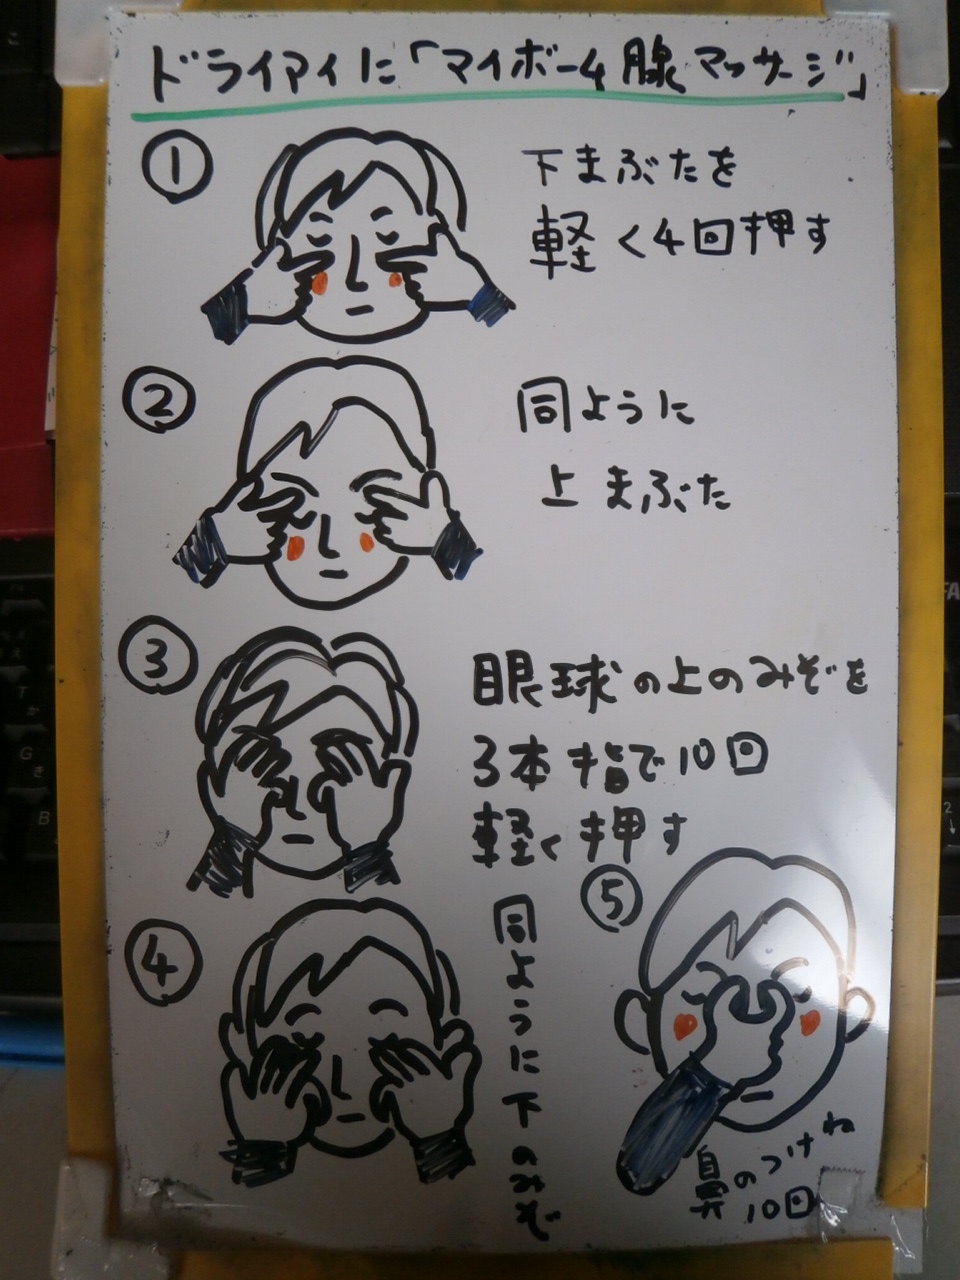 ドライアイに「マイボー4腺マッサージ」
①
下まぶたを
軽く4回押す
②
同ように
上まぶた
③
眼球の上のみぞを
3本指で10回
軽く押す
④
同ように下のみぞ
⑤
鼻のつけね
10回
T
か
G
き
B
FA
2